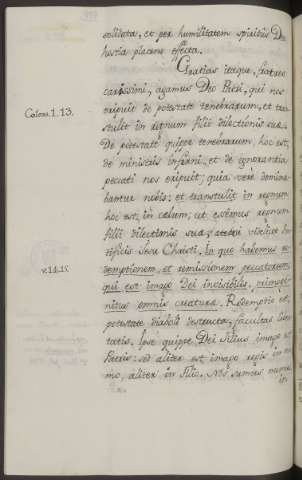 sollicita, et per humilitatem spiritus De
hostia placens effecta.
Gratias itaque, fratres
carissimi, agamus Deo Patri, qui nos
Coloss. 1. 13.
eripuit de potestate tenebrarum, et tran
stulit in regnum filii dilectionis suæ.
De potestate quippe tenebrarum, hoc est,
de ministris inferni, et de ignorantia
peccati nos eripuit; quia vere domina
bantur nobis; et transtulit in regnum
hoc est, in cælum; ut essemus regnum
filii dilectionis suæ
Jesu Christi, in quo habemus re
v. 14. 15.
demptionem, et remissionem peccatorum,
qui est imago Dei invisibilis, primoge
nitus omnis creaturæ. Redemptio est,
potestate diaboli destructa, facultas liber
tatis. Ipse quippe Dei filius imago est
Patris: sed aliter est imago regis in num
mo, aliter in filio. Nos sumus nummus